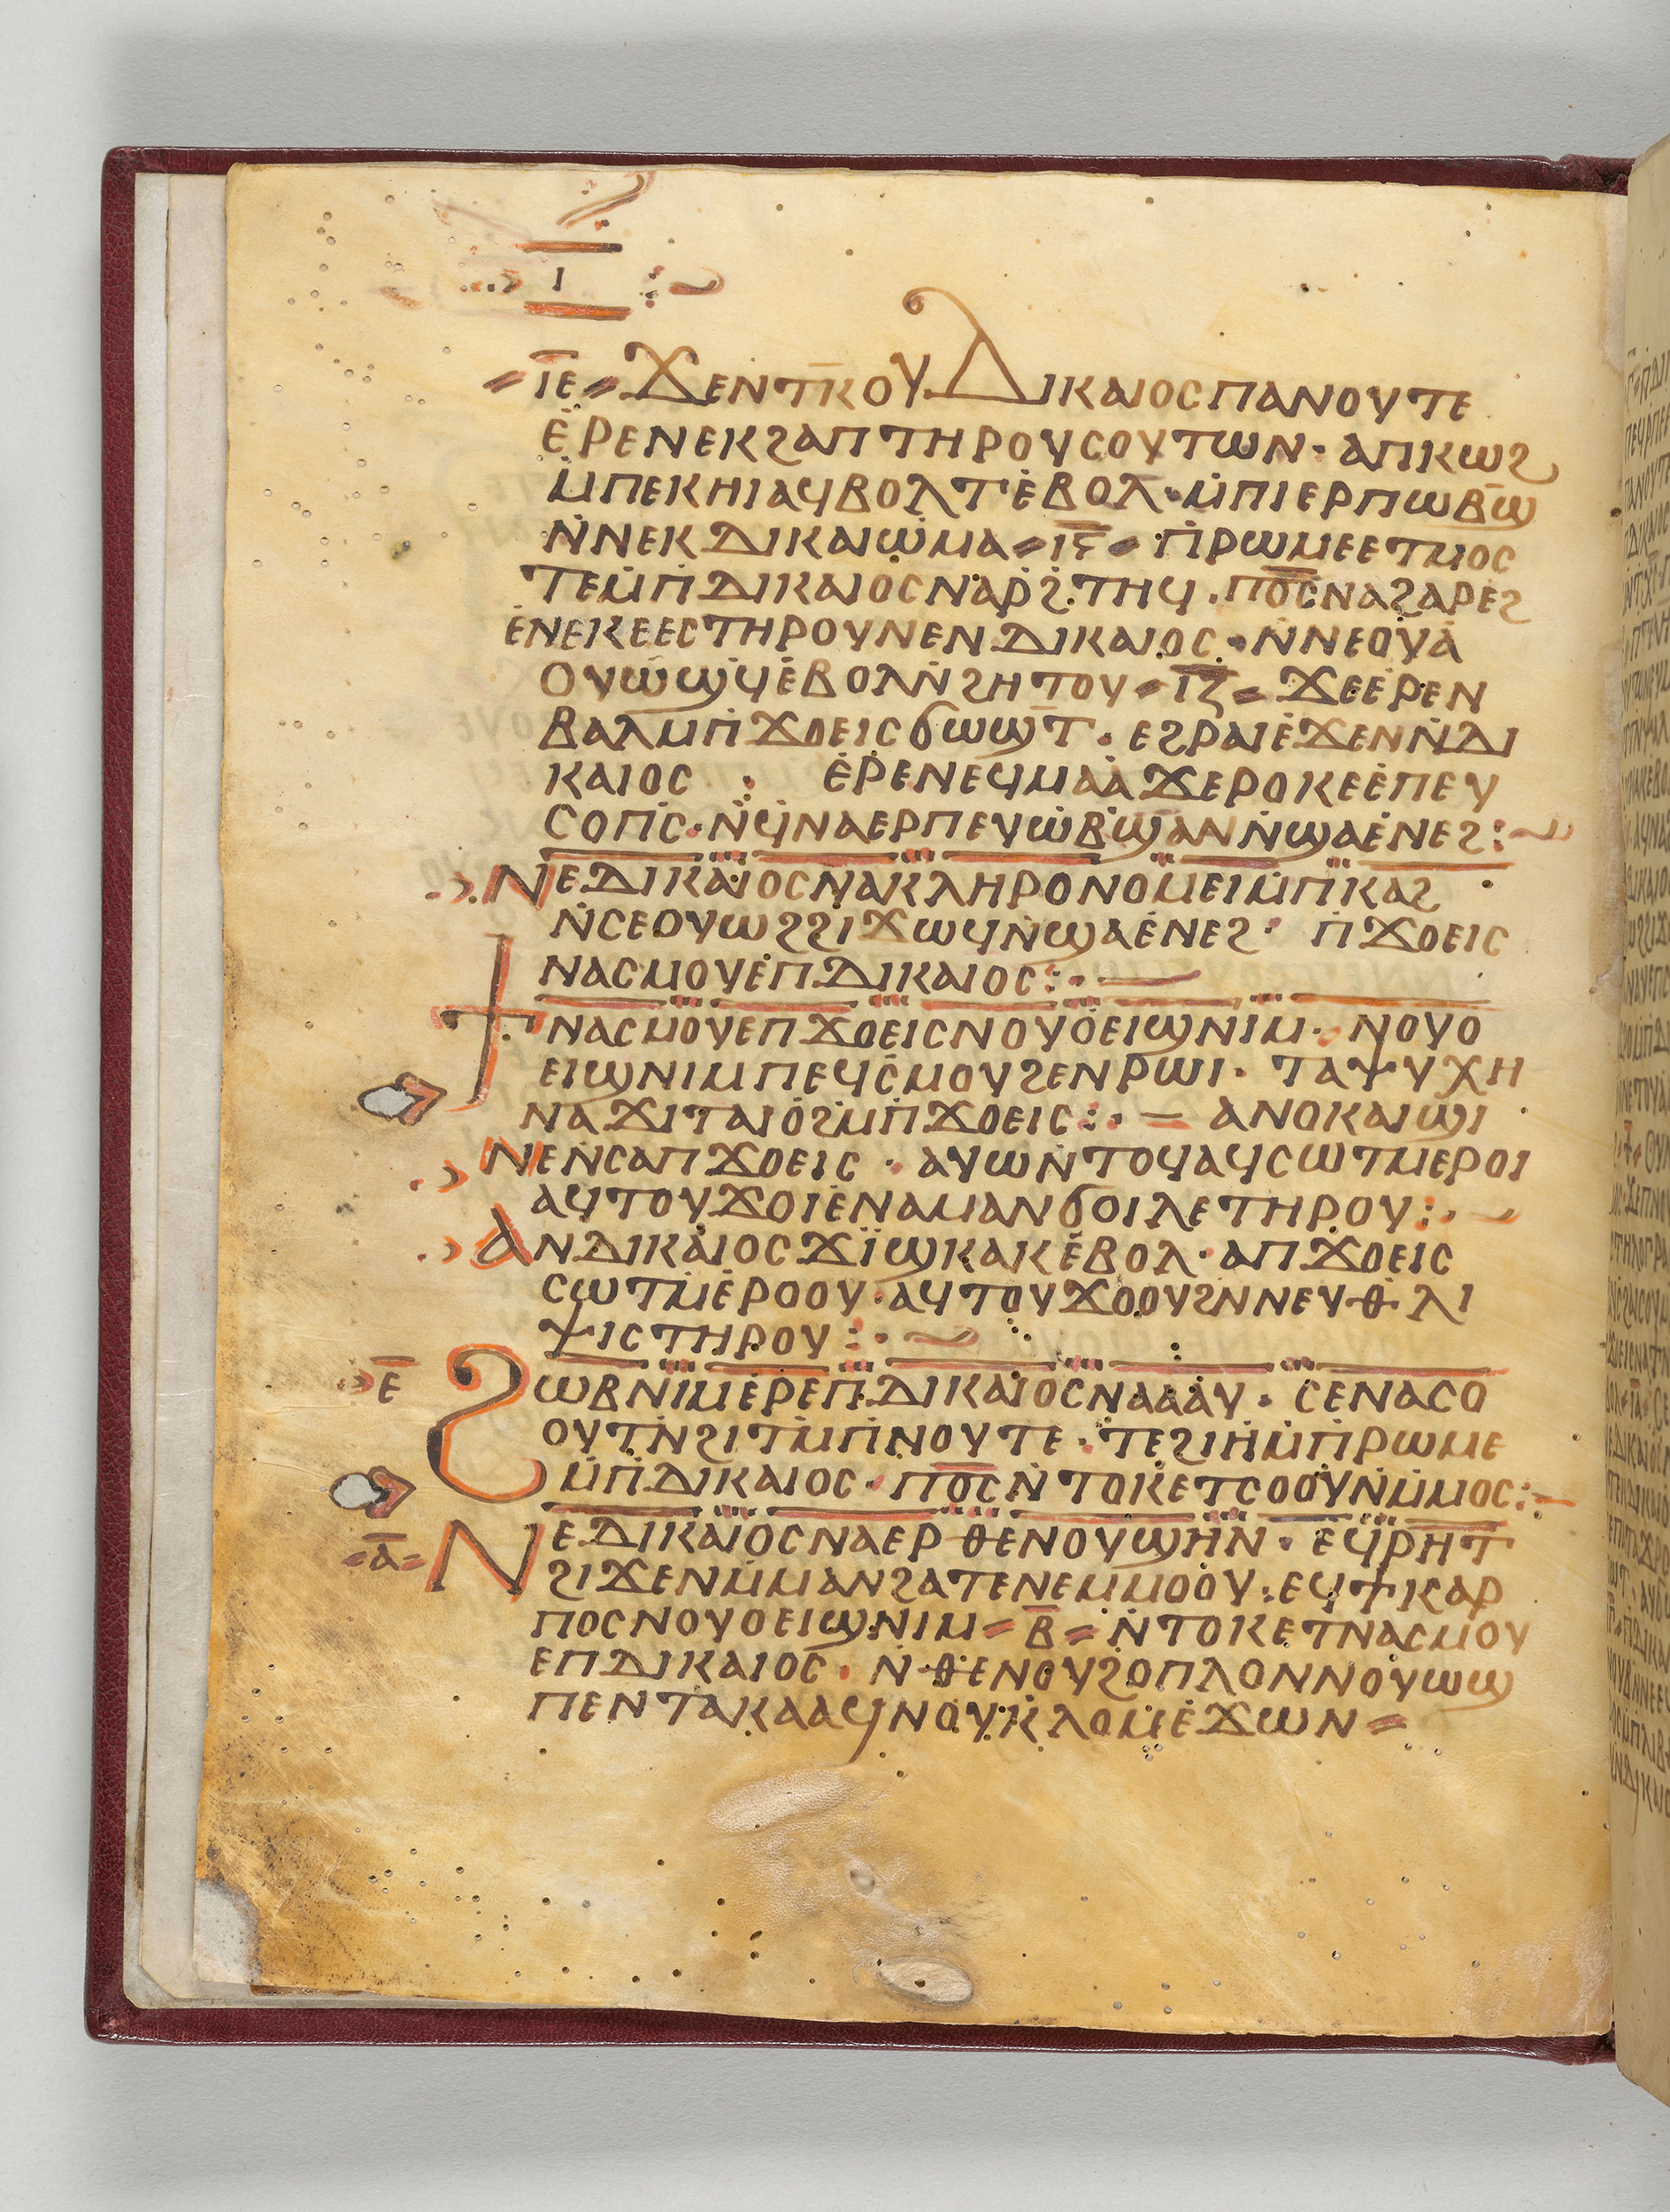 Ⲓ
ⲒⲈ ϪⲈⲚⲦⲔⲞⲨⲆⲒⲔⲀⲒⲞⲤⲠⲀⲚⲞⲨⲦⲈ
ⲈⲢⲈⲚⲈⲔϨⲀⲠⲦⲎⲢⲞⲨⲤⲞⲨⲦⲰⲚ· ⲀⲠⲔⲰϨ
ⲘⲠⲈⲔⲎⲒⲀϤⲂⲟⲗⲦⲈⲂⲞⲖ· ⲘⲠⲒⲈⲢⲠⲰⲂϢ
ⲚⲚⲈⲔⲆⲒⲔⲀⲒⲰⲘⲀ ⲒϚ ⲠⲢⲰⲘⲈⲈⲦⲘⲞⲤ
ⲦⲈⲘⲠⲆⲒⲔⲀⲒⲞⲤⲚⲀⲢϨⲦⲎϤ· ⲠⲞ̅Ⲥ̅ⲚⲀϨⲀⲢⲈϨ
ⲈⲚⲈⲔⲈⲈⲤⲦⲎⲢⲞⲨⲚⲈⲚⲆⲒⲔⲀⲒⲞⲤ· ⲚⲚⲈⲞⲨⲀ
ⲞⲨⲰϢϤⲈⲂⲞⲖⲚϨⲎⲦⲞⲨ ⲒⲌ ϪⲈⲈⲢⲈⲚ
ⲂⲀⲖⲘⲠϪⲞⲈⲒⲤϬⲰϢⲦ· ⲈϨⲢⲀⲒⲈϪⲈⲚⲚⲆⲒ
ⲔⲀⲒⲞⲤ · ⲈⲢⲈⲚⲈϤⲘⲀⲀϪⲈⲢⲞⲔⲈⲈⲠⲈⲨ
ⲤⲞⲠⲤ· ⲚϤⲚⲀⲈⲢⲠⲈⲨⲰⲂϢⲀⲚⲚϢⲀⲈⲚⲈϨ:~
ⲚⲈⲆⲒⲔⲀⲒⲞⲤⲚⲀⲔⲖⲎⲢⲞⲚⲞⲘⲈⲒⲘⲠⲔⲀϨ
ⲚⲤⲈⲞⲨⲰϨϨⲒϪⲰϤⲚϢⲀⲈⲚⲈϨ· ⲠϪⲞⲈⲒⲤ
ⲚⲀⲤⲘⲞⲨⲈⲠⲆⲒⲔⲀⲒⲞⲤ:·—
ϮⲚⲀⲤⲘⲞⲨⲈⲠϪⲞⲈⲒⲤⲚⲞⲨⲞⲈⲒϢⲚⲒⲘ· ⲚⲞⲨⲞ
ⲈⲒϢⲚⲒⲘⲠⲈϤⲤⲘⲞⲨϨⲈⲚⲢⲰⲒ· ⲦⲀⲮⲨⲬⲎ
ⲚⲀϪⲒⲦⲀⲒⲞϨⲘⲠϪⲞⲈⲒⲤ:·— ⲀⲚⲞⲔⲀⲒϢⲒ
ⲚⲈⲚⲤⲀⲠϪⲞⲈⲒⲤ· ⲀⲨⲰⲚⲦⲞϤⲀϤⲤⲰⲦⲘⲈⲢⲞⲒ
ⲀϤⲦⲞⲨϪⲞⲒⲈⲚⲀⲘⲀⲚϬⲞⲒⲖⲈⲦⲎⲢⲞⲨ:·~
ⲀⲚⲆⲒⲔⲀⲒⲞⲤϪⲒϢⲔⲀⲔⲈⲂⲞⲖ· ⲀⲠϪⲞⲈⲒⲤ
ⲤⲰⲦⲘⲈⲢⲞⲞⲨ· ⲀϤⲦⲞⲨϪⲞⲞⲨϨⲚⲚⲈⲨⲐⲖⲒ
ⲮⲒⲤⲦⲎⲢⲞⲨ:·~
Ⲉ̅ ϨⲰⲂⲚⲒⲘⲈⲢⲈⲠⲆⲒⲔⲀⲒⲞⲤⲚⲀⲀⲀⲨ· ⲤⲈⲚⲀⲤⲞ
ⲞⲨⲦⲚϨⲒⲦⲘⲠⲚⲞⲨⲦⲈ· ⲦⲈϨⲒⲎⲘⲠⲢⲰⲘⲈ
ⲘⲠⲆⲒⲔⲀⲒⲞⲤ· ⲠⲞ̅Ⲥ̅ⲚⲦⲞⲔⲈⲦⲤⲞⲞⲨⲚⲘⲘⲞⲤ:~
Ⲁ̅ ⲚⲈⲆⲒⲔⲀⲒⲞⲤⲚⲀⲈⲢⲐⲈⲚⲞⲨϢⲎⲚ· ⲈϤⲢⲎⲦ
ϨⲒϪⲈⲚⲘⲘⲀⲚϨⲀⲦⲈⲚⲈⲘⲘⲞⲞⲨ: ⲈϤϮⲔⲀⲢ
ⲠⲞⲤⲚⲞⲨⲞⲈⲒϢⲚⲒⲘ Ⲃ̅ ⲚⲦⲞⲔⲈⲦⲚⲀⲤⲘⲞⲨ
ⲈⲠⲆⲒⲔⲀⲒⲞⲤ· ⲚⲐⲈⲚⲞⲨϨⲞⲠⲖⲞⲚⲚⲞⲨⲰϢ
ⲠⲈⲚⲦⲀⲔⲀⲀϤⲚⲞⲨⲔⲖⲞⲘⲈϪⲰⲚ